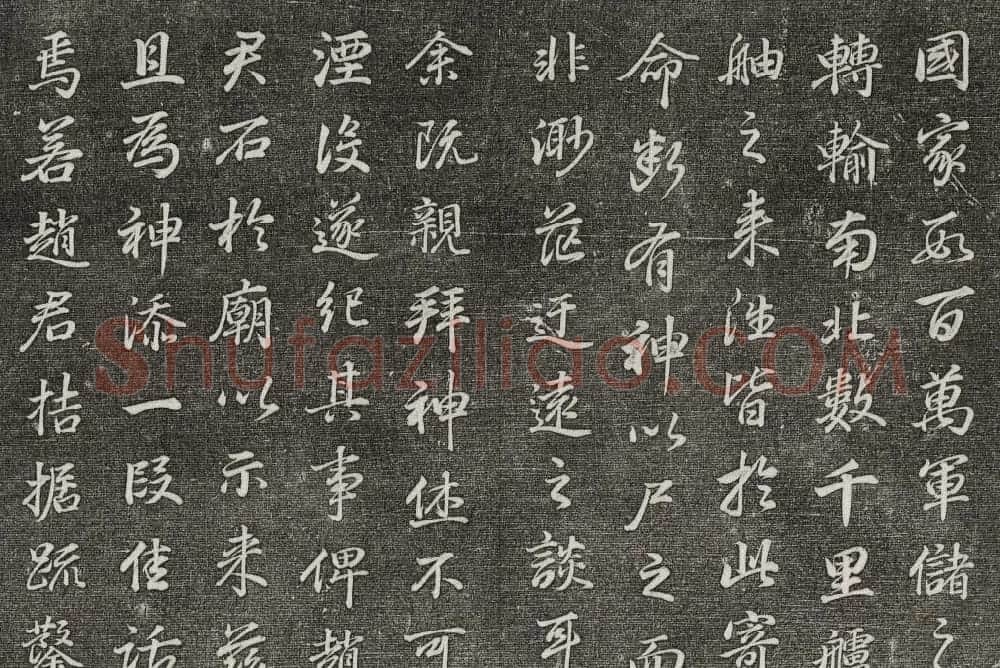 國家百萬軍儲之
轉輸南北數千里艫
舳之来往皆於此寄
命斷有神以尸之而
非渺茫迂遠之談耳
余既親拜神休不可
湮没遂紀其事俾趙
君石於廟以示来茲
且為神添一段佳話
焉若趙君拮据疏鑿
Shufaziliao.COM